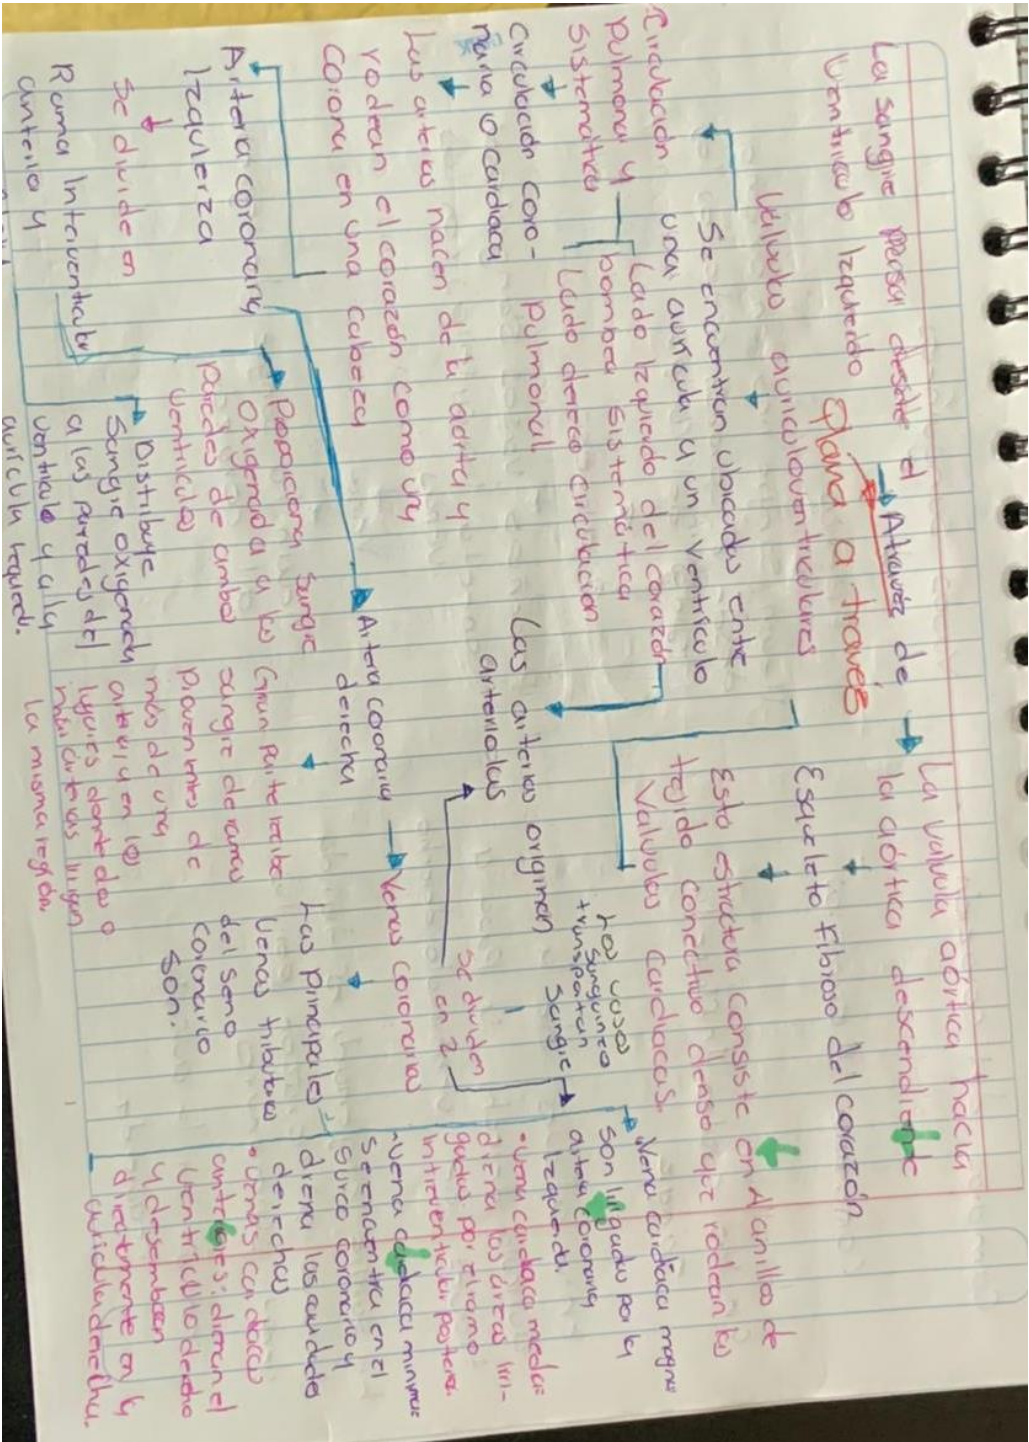 La sangre pasa desde el
ventriculo Izquierdo
Atravéz de
plana a través
La valvula aórtica hacia
la aórtica descendiente
Valvulas auriculoventriculares
Se encuentran ubicadas entre
una aurícula y un ventrículo
Esqueleto fibroso del corazón
Esta estructura consiste en 4 anillos de
tejido conectivo denso que rodean las
Valvulas cardiacas.
Circulación
pulmonar y
sistematica
Lado Izquierdo del corazón
bombea sistemática
Lado dereco circulacion
pulmonal
Circulación coro-
naria o cardiaca
Las arterias nacen de la aorta y
rodean el corazón como una
corona en una cabeza
Las arterias originan
arteriolas
Los vasos
sanguineo
transportan
sangre
se dividen
en 2
Arteria coronaria
Izquierza
Se divide en
Rama Interventicular
anterio y
Proporciona sangre
oxigenada a los
paredes de ambo
ventriculos
Distribuye
Sangre oxigenada
a las paredes del
ventriculo y a la
aurícula Izquierd.
Arteria coronaria
derecha
Gran parte recibe
sangre de ramas
provenientes de
más de una
arteria y en los
lugares donde dos o
más arterias irrigan
la misma región
Venas coronarias
Las principales
venas tributarias
del seno
coronario
son:
Vena cardiaca magna:
son Irrigado por la
arteria coronaria
Izquierda.
•Vena cardiaca media:
drena las áreas irri-
gadas por el ramo
Interventicular posterior
-Vena cardiaca minima:
se encuentra en el
surco coronario y
drena las cavidades
derechas
•Venas cardiacas
anteriores: drenan el
ventriculo derecho
y desembocan
directamente en la
auricula derecha.